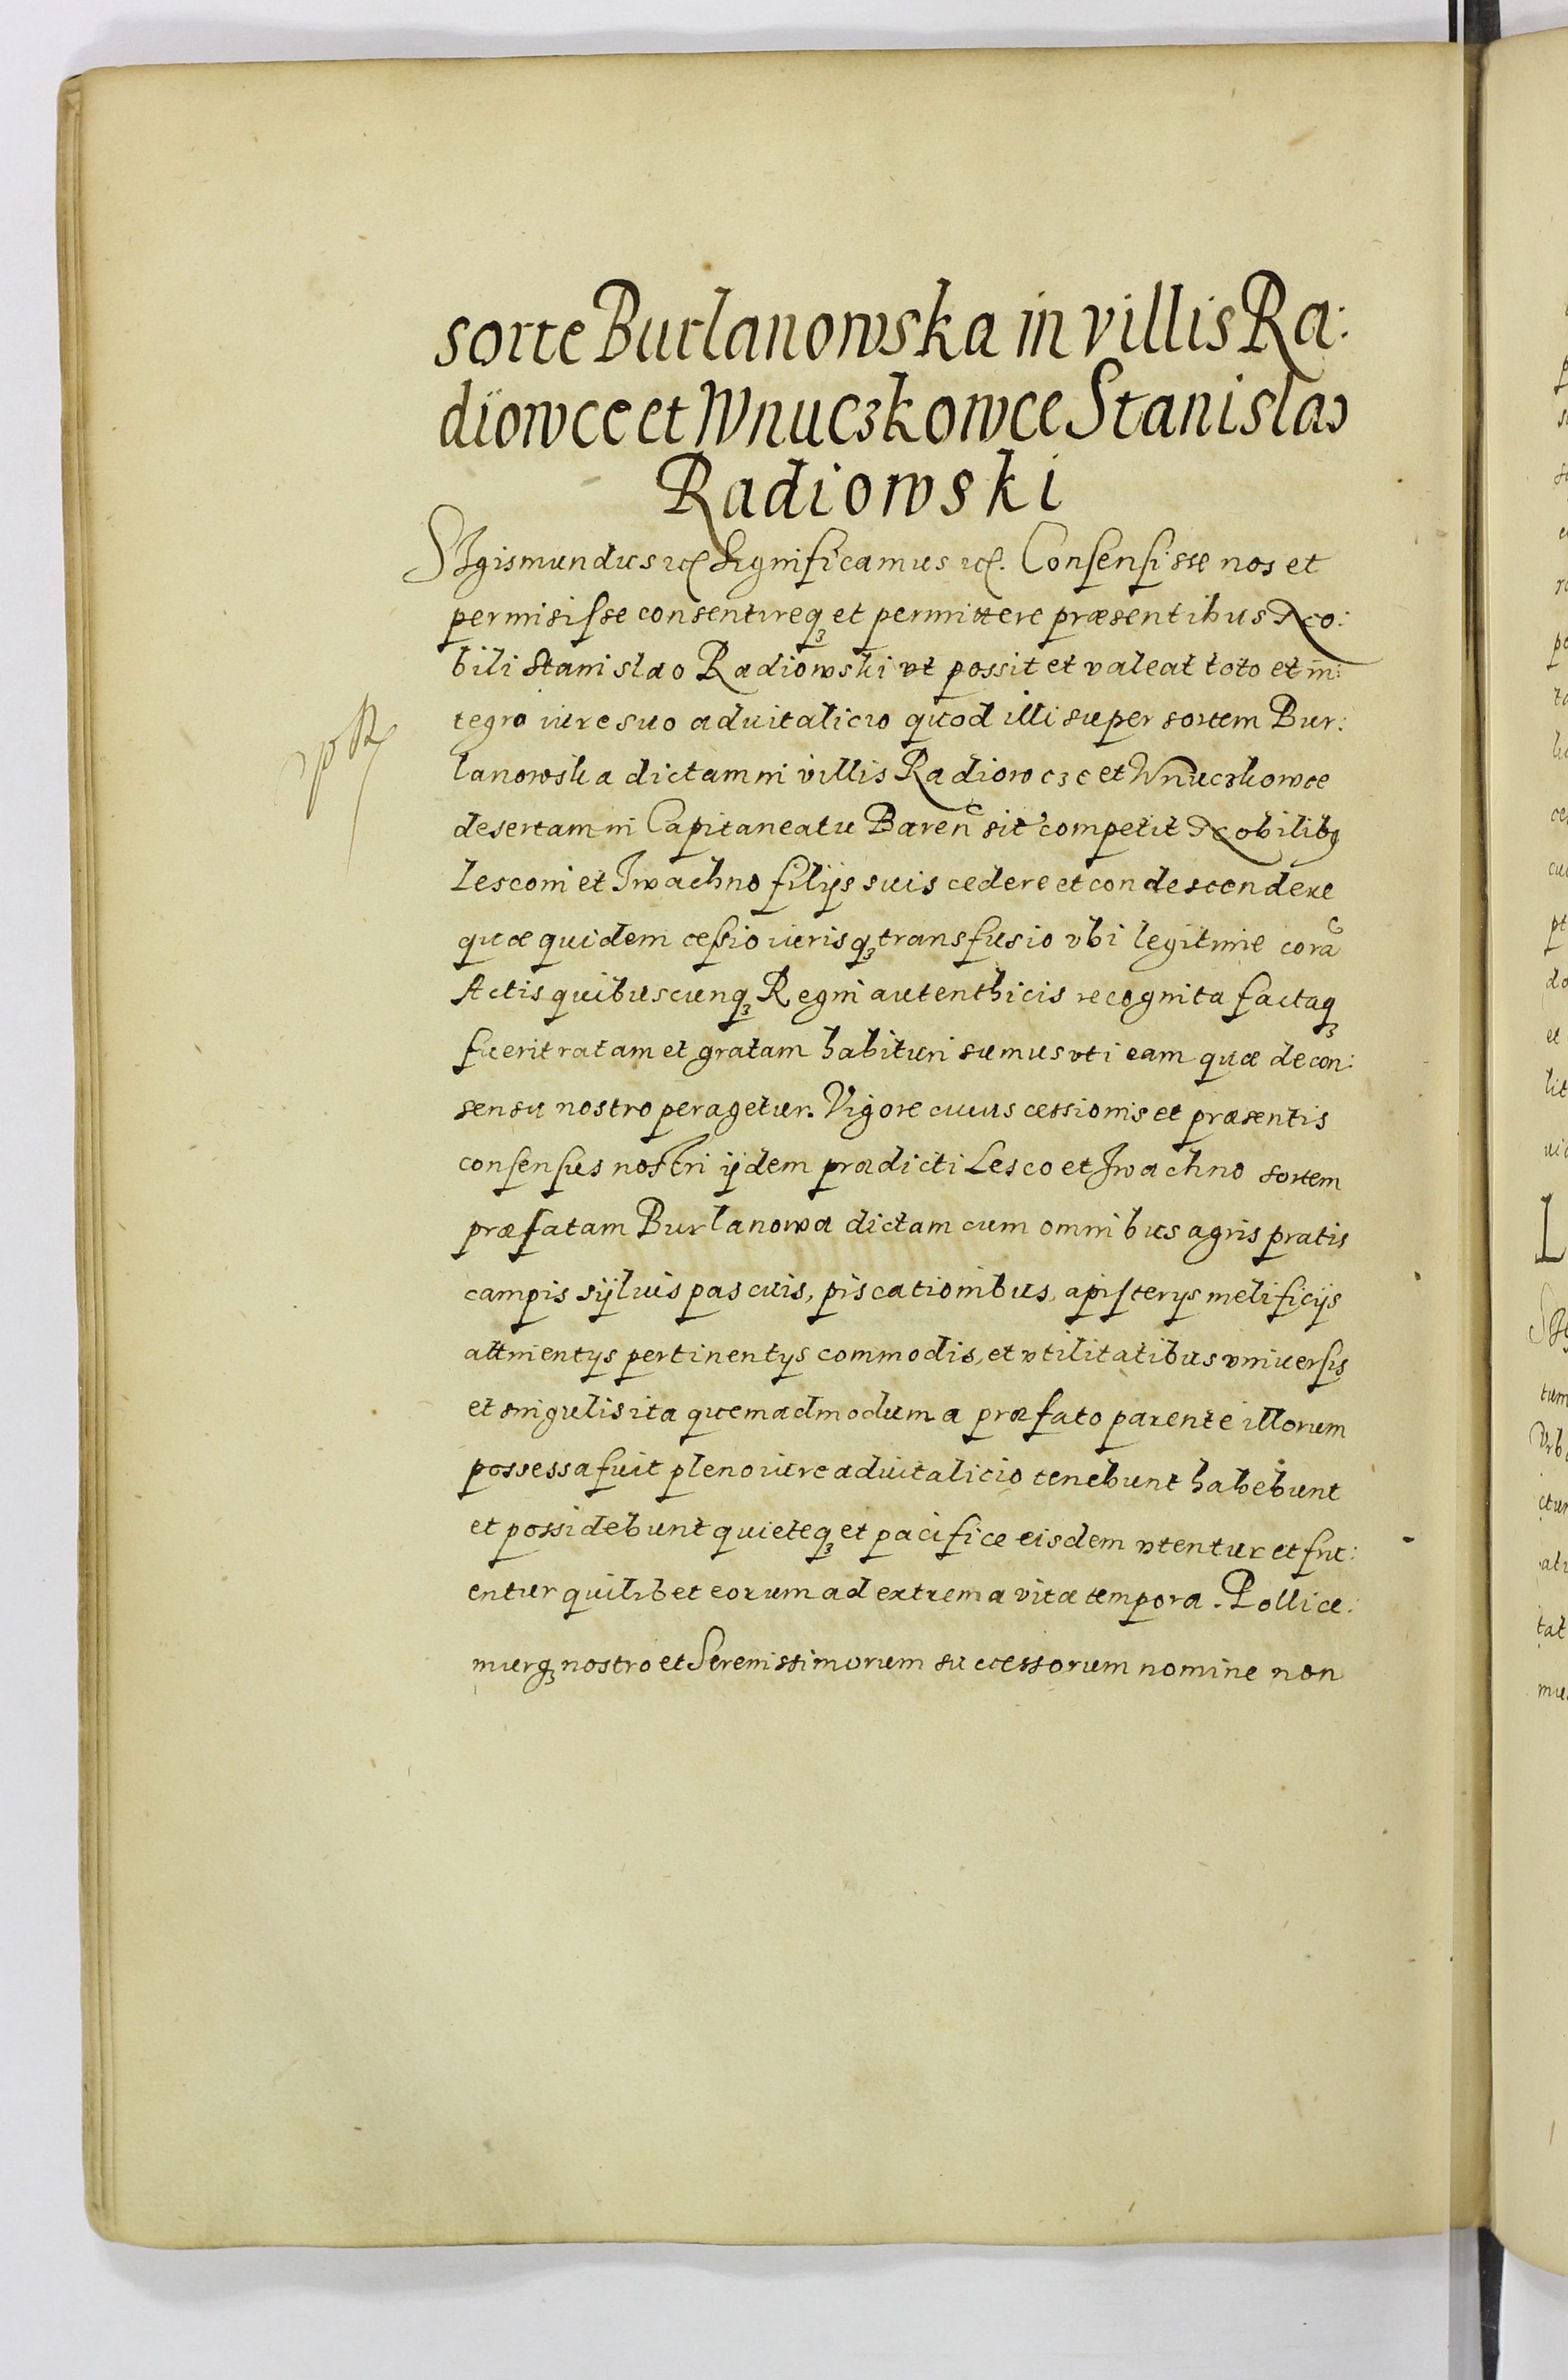 sorte Burlanowska in villis Ra:
diowce et Wnuczkowce Stanislao
Radiowski
SIgismundus etc Significamus etc. Consensisse nos et
permisisse consentireqꝫ et permittere præsentibus No:
bili Stanislao Radiowski vt possit et valeat toto et in:
tegro iure suo aduitalicio quod illi super sortem Bur:
lanowska dictam in villis Radiowcze et Wnuczkowce
desertam in Capitaneatu Baren̄ sit competit Nobilibꝫ
Lesconi et Iwachno filijs suis cedere et condescendere
quæ quidem cessio iurisqꝫ transfusio vbi legitime corā
Actis quibuscunqꝫ Regni autenthicis recognita factaqꝫ
fuerit ratam et gratam habituri sumus vti eam quæ de con:
sensu nostro peragetur. Vigore cuius cessionis et præsentis
consensus nostri ijdem prædicti Lesco et Iwachno sortem
præfatam Burlanowa dictam cum omnibus agris pratis
campis syluis pascuis, piscationibus, apisterys melificijs
attinentys pertinentys commodis, et vtilitatibus vniuersis
et singulis ita quemadmodum a præfato parente illorum
possessa fuit pleno iure aduitalicio tenebunt habebunt
et possidebunt quieteqꝫ et pacifice eisdem vtentur et fru:
entur quilibet eorum ad extrema vitæ tempora. Pollice:
murqꝫ nostro et Serenissimorum successorum nomine non